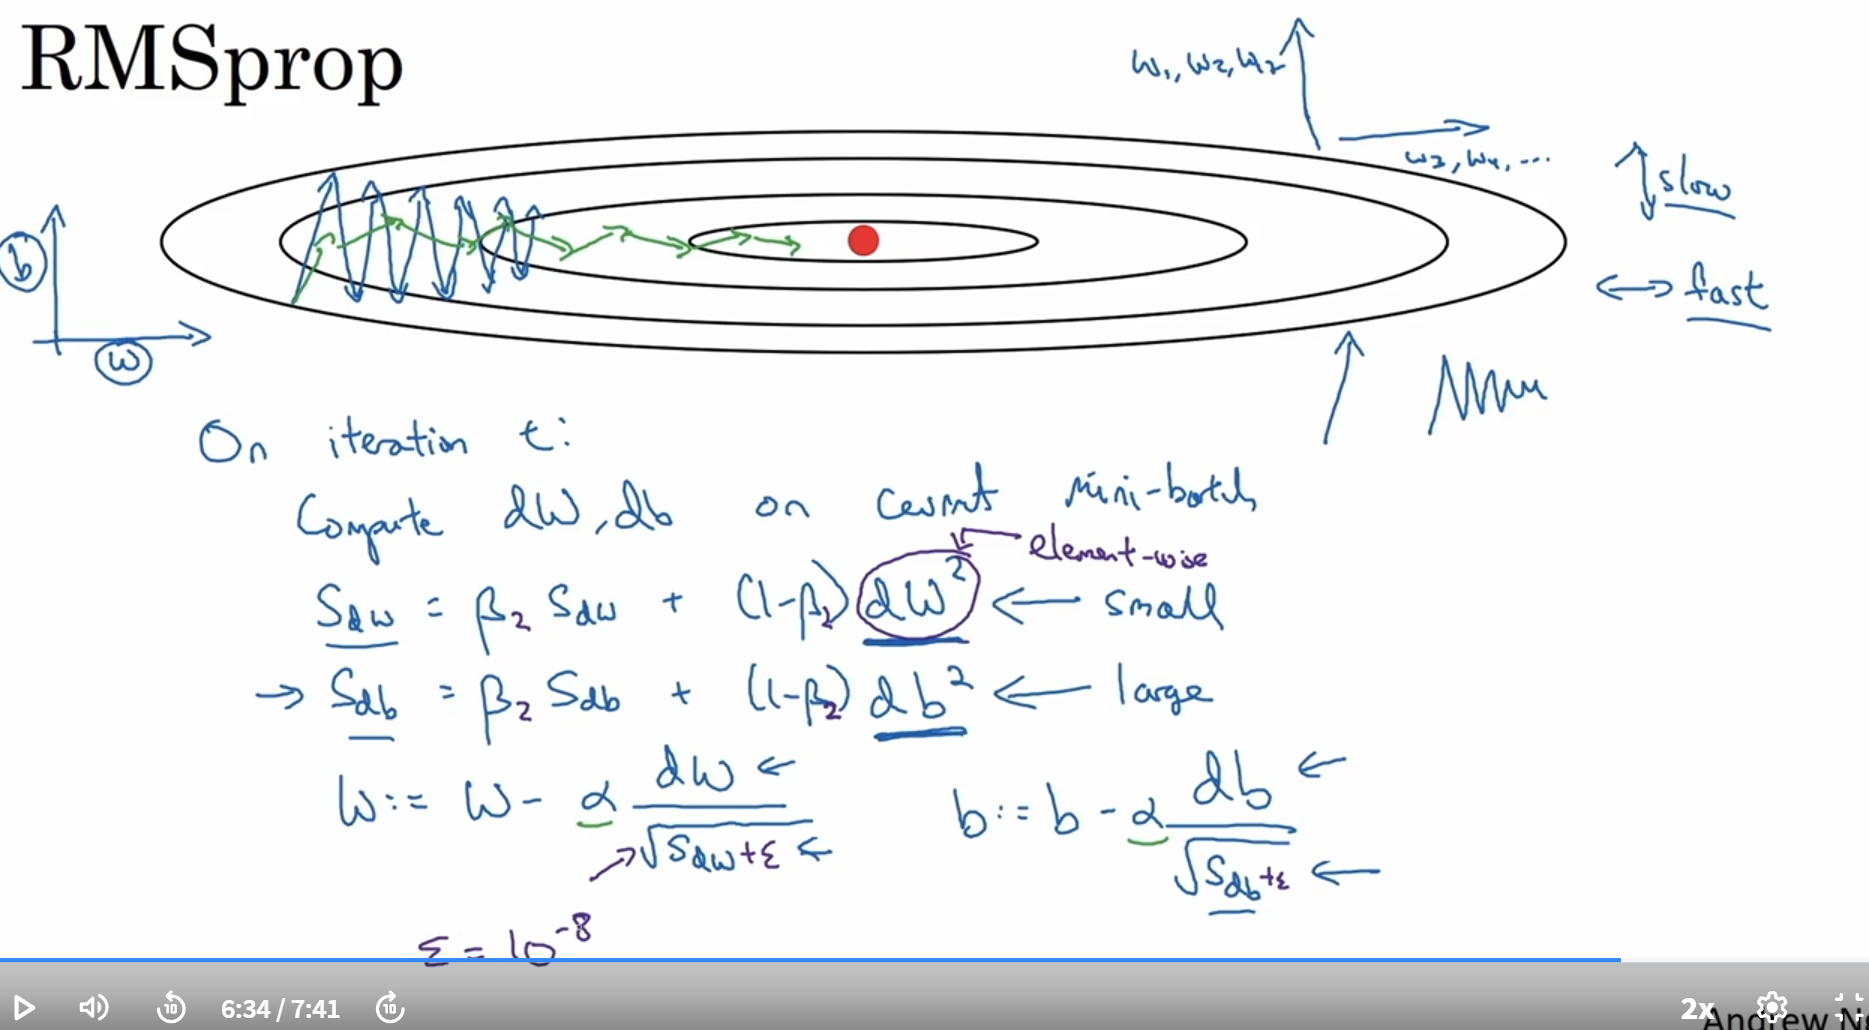 RMSprop
w₁, w₂, w₁₇
w₃, w₄, ...
slow
b
fast
w
On iteration t:
Compute dW, db on current mini-batch
element-wise
S_dw = β₂ S_dw + (1-β₂) dW² ← small
→ S_db = β₂ S_db + (1-β₂) db² ← large
W := W - α dW / √S_dw+ε ←
b := b - α db / √S_db+ε ←
ε = 10⁻⁸
6:34 / 7:41
10
10
2x
Andrew N